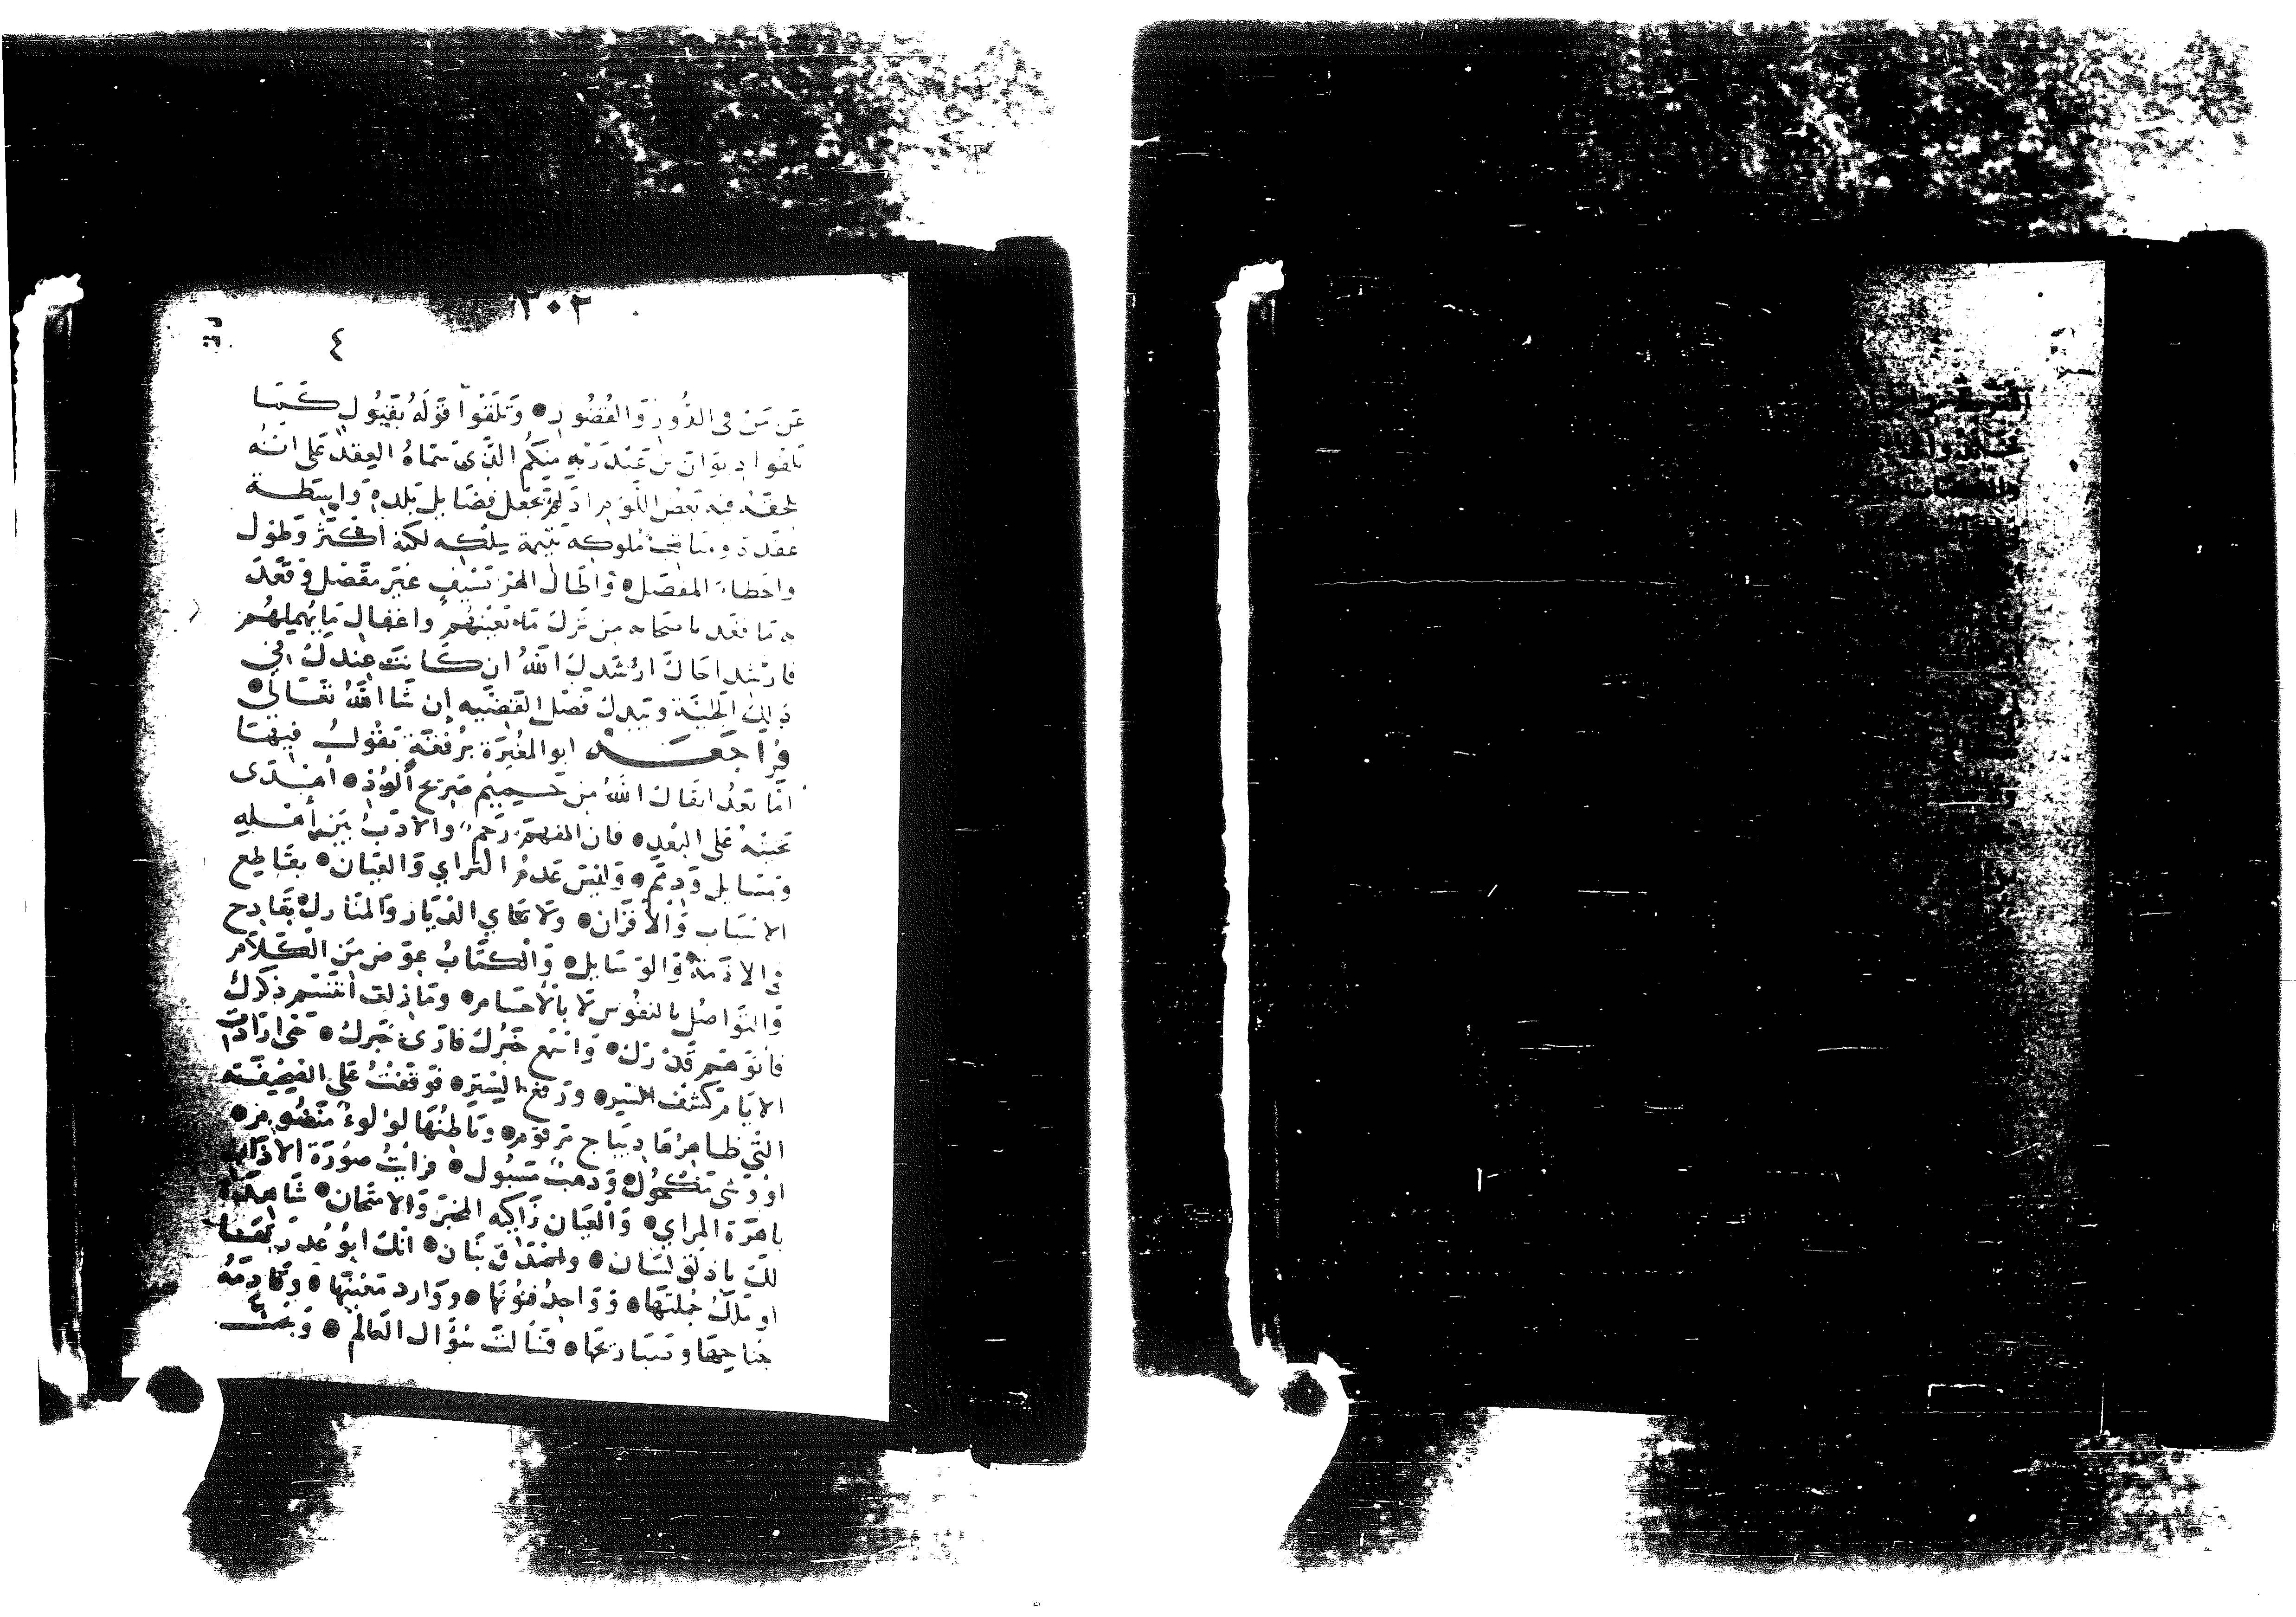 ٣٠٢
٤
عَن مَنْ فى الدُّورِ وَالقُصُورِ وَتَلَقَّوْا قَوْلَهُ بِقَبُولٍ كَمَا
تلقوا ديوان بن عَبْد رَبِّهِ مِنكُم الذى سَمّاهُ العِقد عَلى انّه
يلحقه فيه بَعضُ اللوم اذ لَمْ يَجْعَل فضَايل بَلده وَاسِطة
عقده ومناقب مُلوكه يَتِيمَة سِلكه لكنه اكثر وَطول
واخطاء المفصل وَاطال الهز لسَيْفٍ غير مقصل وَقعَد
به مَا قعد باصحابه مِن تَرك مَا يعْنيهُم واغفال مَا يهمّهم
فارشد اخاك ارْشدك اللهُ ان كَانَت عِندكَ فى
ذلك الجليّة وَبيدك فصل القضيّه إن شا اللهُ تعَالى
فراجَعَه ابو المغيرة برُقعَة يَقُول فيهَا
امّا بَعْدُ ابقاكَ اللهُ مِن حميم صَريح الودّ أهْدَى
تحيّته عَلى البُعدِ فان الفهم رَحم والادَب بَيْن أهْله
وسَايل وَذمَم وَليسَ عَدم التراي وَالعيَان بقَاطِع
الانسَاب وَالاقْرَان وَلا تنَاي الديَار وَالمنَازل بقادح
فى الاذمة وَالوسَايل وَالكتَابُ عوَض مَن الكلام
وَالتوَاصُل بالنفُوس لا بالاجسَام ومَا زلت أتنسّم ذكرك
فاتوَهم قَدْرك وَاسْمَع خَبرك فارَى خبرك حَتى ارَادَت
الايام كشف السّتر وَرَفع اليَسير فوَقفتُ عَلى الصّحِيفة
التى ظاهرهَا ديبَاج مَرقوم وبَاطنهَا لؤلؤ مَنظوم
او وَشى مَحُول وَذهب مَسبُول فرايتُ صُورة الادَاب
باهرَة المراي وَالعيَان زَاكيه المخبَر وَالامتحان شَاهدَة
لك باذلق لسَان وَاصْدَق بَيَان انكَ ابُو عُذرتهَا
او مَالكُ جُملتهَا وَوَاحِدُ فنُونها وَوَارد مَعينهَا وَقادمَة
جناحهَا وَسبَاريحهَا فسَالتَ سُؤَال العَالم وَبَحثت